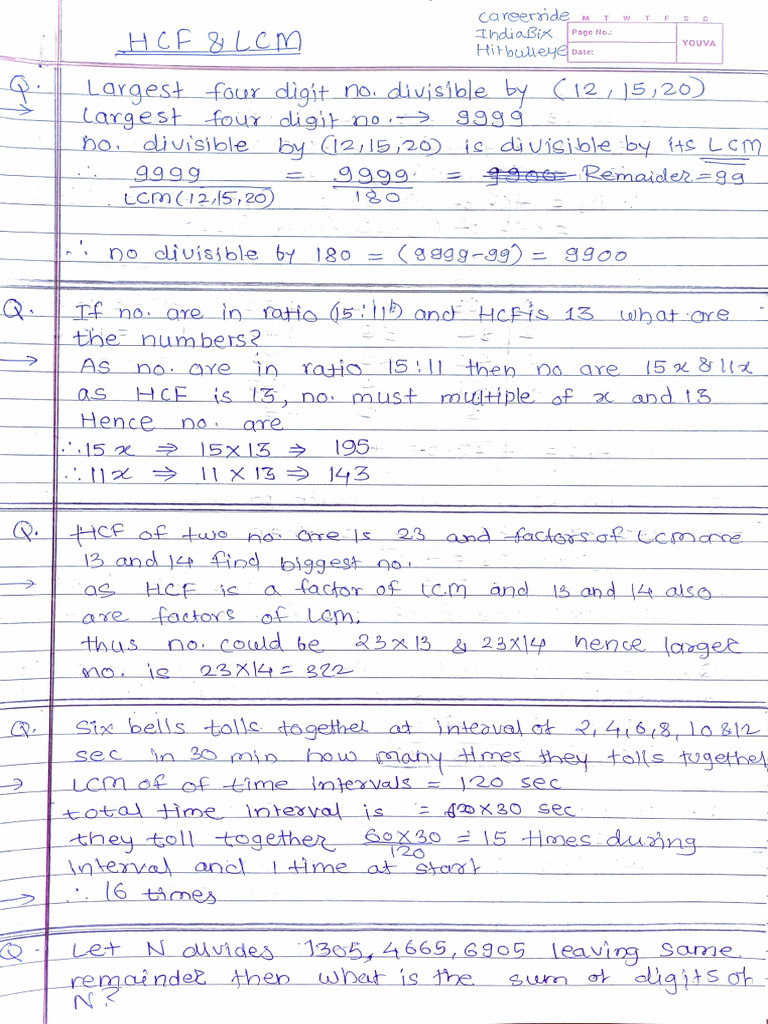 Careerride
IndiaBix
Hitbulleye
M T W T F S S
Page No.:
Date:
YOUVA
HCF & LCM
Q. Largest four digit no. divisible by (12, 15, 20)
→ Largest four digit no. → 9999
no. divisible by (12,15,20) is divisible by its LCM
∴ 9999 / LCM(12,15,20) = 9999 / 180 = Remaider = 99
∴ no divisible by 180 = (9999-99) = 9900
Q. If no. are in ratio (15:11) and HCF is 13 what are
the numbers?
→ As no. are in ratio 15:11 then no are 15x & 11x
as HCF is 13, no. must multiple of x and 13
Hence no. are
∴ 15x ⇒ 15×13 ⇒ 195
∴ 11x ⇒ 11×13 ⇒ 143
Q. HCF of two no. are is 23 and factors of LCM are
13 and 14 find biggest no.
→ as HCF is a factor of LCM and 13 and 14 also
are factors of LCM.
thus no. could be 23×13 & 23×14 hence larger
no. is 23×14 = 322
Q. Six bells tolls together at interval of 2,4,6,8,10 & 12
sec in 30 min how many times they tolls together
→ LCM of of time intervals = 120 sec
total time interval is = ×30 sec
they toll together 60×30 / 120 = 15 times during
interval and 1 time at start
→ ∴ 16 times
Q. Let N divides 1305, 4665, 6905 leaving same
remainder then what is the sum of digits of
N?